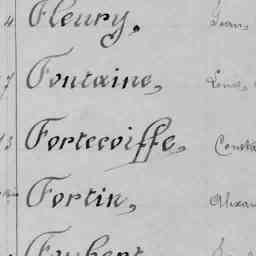 4 Fleury, Jean
7 Fontaine, Louis
3 Fortecoiffe, Consta
Fortin, Alexan
Foubert